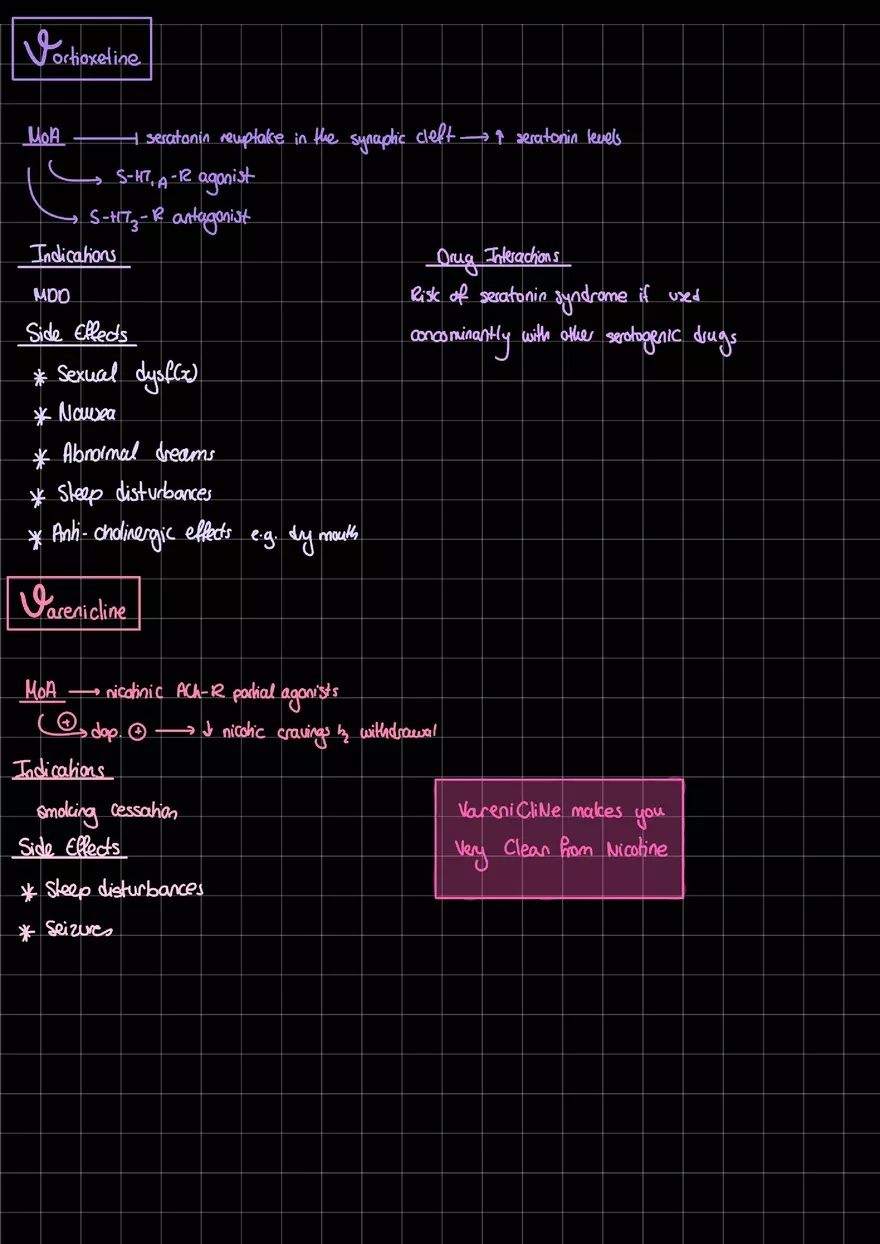 Vortioxetine
MoA ⊣ seratonin reuptake in the synaptic cleft → ↑ seratonin levels
→ 5-HT1A-R agonist
→ 5-HT3-R antagonist
Indications
MDD
Side Effects
* Sexual dysf(x)
* Nausea
* Abnormal dreams
* Sleep disturbances
* Anti-cholinergic effects e.g. dry mouth
Drug Interactions
Risk of seratonin syndrome if used
concominantly with other serotogenic drugs
Varenicline
MoA → nicotinic ACh-R partial agonists
⊕ → dop. ⊕ → ↓ nicotic cravings & withdrawal
Indications
smoking cessation
Side Effects
* Sleep disturbances
* Seizures
VareniCliNe makes you
Very Clean from Nicotine